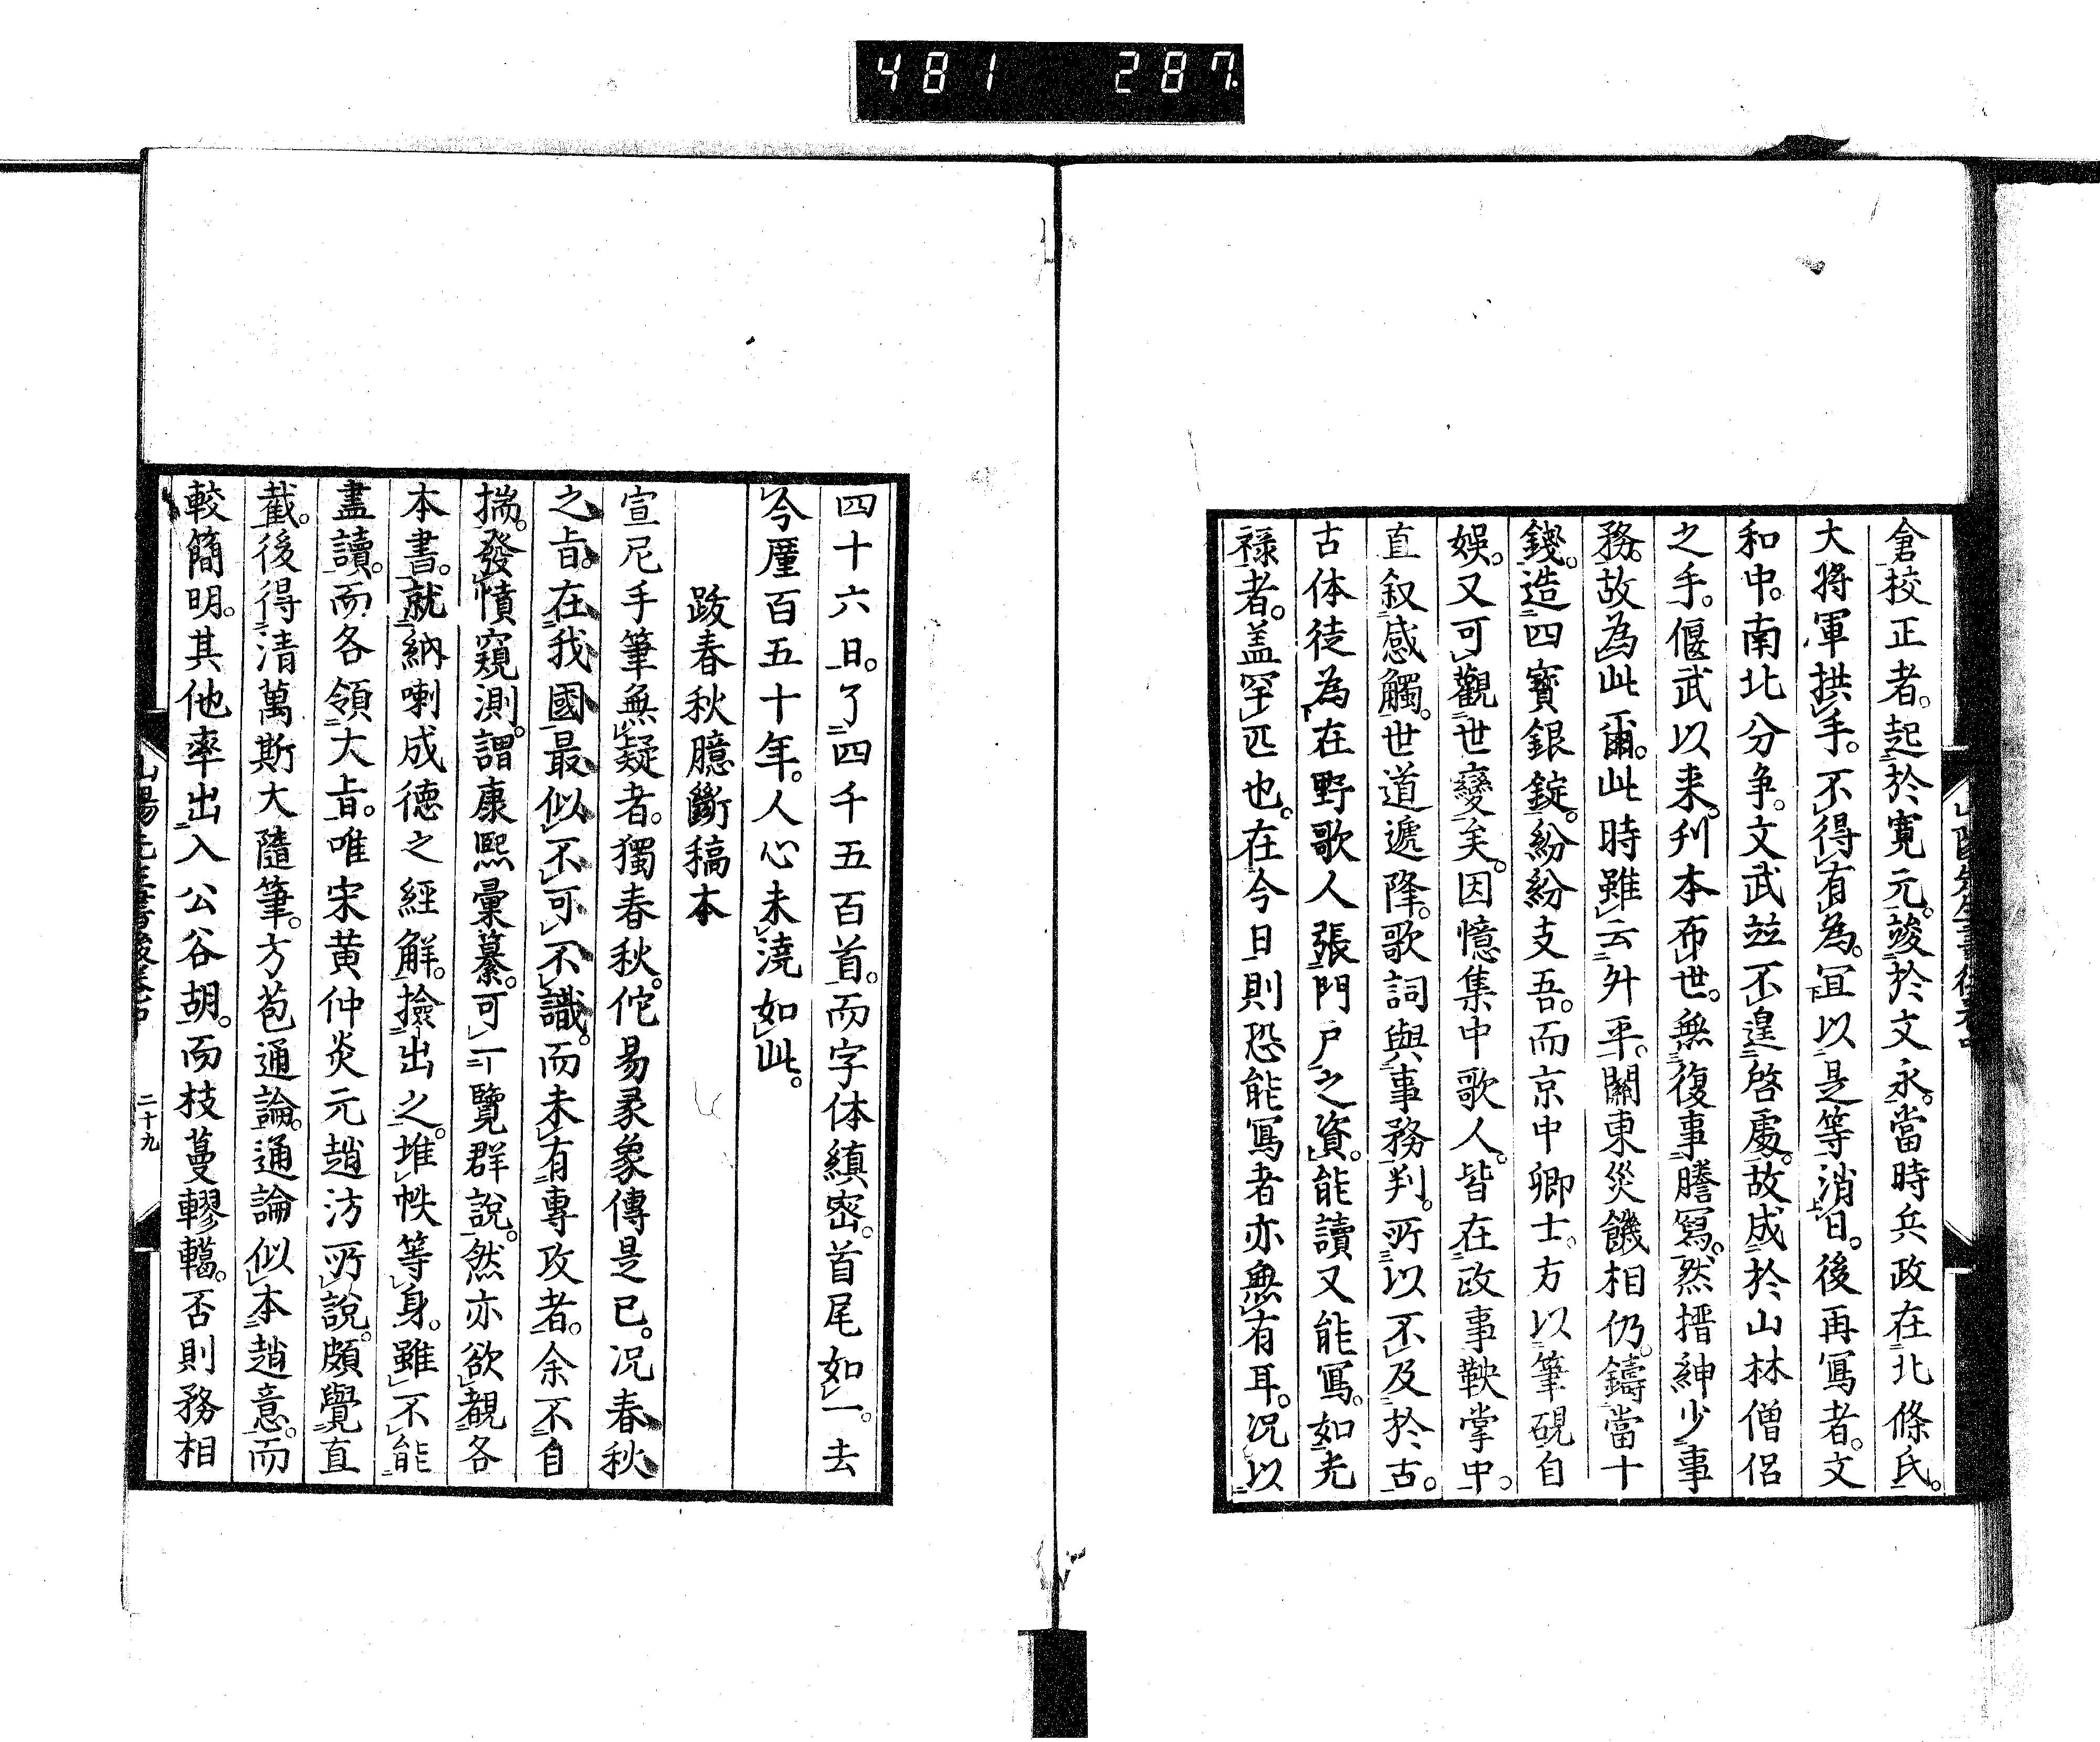 481 287
倉校正者。起於寛元。竣於文永。當時兵政在北條氏。
大將軍拱手。不得有為。冝以是等消日。後再寫者。文
和中。南北分争。文武竝不遑啓處。故成於山林僧侶
之手。偃武以来。刋本布世。無復事謄寫。然搢紳少事
務。故為此爾。此時雖云升平。關東災饑相仍。鑄當十
錢。造四寶銀錠。紛紛支吾。而京中卿士。方以筆硯自
娯。又可觀世變矣。因憶集中歌人。皆在政事鞅掌中。
直叙感觸。世道遞降。歌詞與事務判。所以不及於古。
古体徒為在野歌人張門戸之資。能讀又能寫。如光
禄者。盖罕匹也。在今日則恐能寫者亦無有耳。况以
四十六日。了四千五百首。而字体縝密。首尾如一。去
今厪百五十年。人心未澆如此。
跋春秋臆斷稿本
宣尼手筆無疑者。獨春秋。佗易彖象傳是已。况春秋
之旨。在我國最似不可不識。而未有專攻者。余不自
揣。發憤窺測。謂康熙彙纂。可一覽群説。然亦欲覩各
本書。就納喇成德之經解。撿出之。堆帙等身。雖不能
盡讀。而各領大旨。唯宋黄仲炎元趙汸所説。頗覺直
截。後得清萬斯大隨筆。方苞通論。通論似本趙意。而
較簡明。其他率出入公谷胡。而枝蔓轇轕。否則務相
二十九